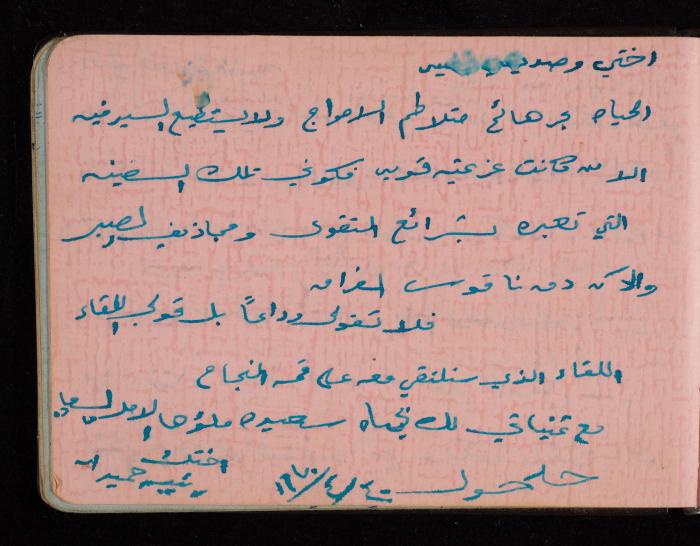 اختي وصديقتي
الحياه بحر هائج متلاطم الامواج ولا يستطيع السير فيه
الا من كانت عزيمته قويه فكوني تلك السفينه
التي تعبره بشرائع التقوى ومجاذيف الصبر
والآن دق ناقوس الفراق
فلا تقولي وداعاً بل قولي اللقاء
اللقاء الذي سنلتقي معه على قمه النجاح
مع تمنياتي لك بحياه سعيده ملؤها الامل
اختك
حلحول